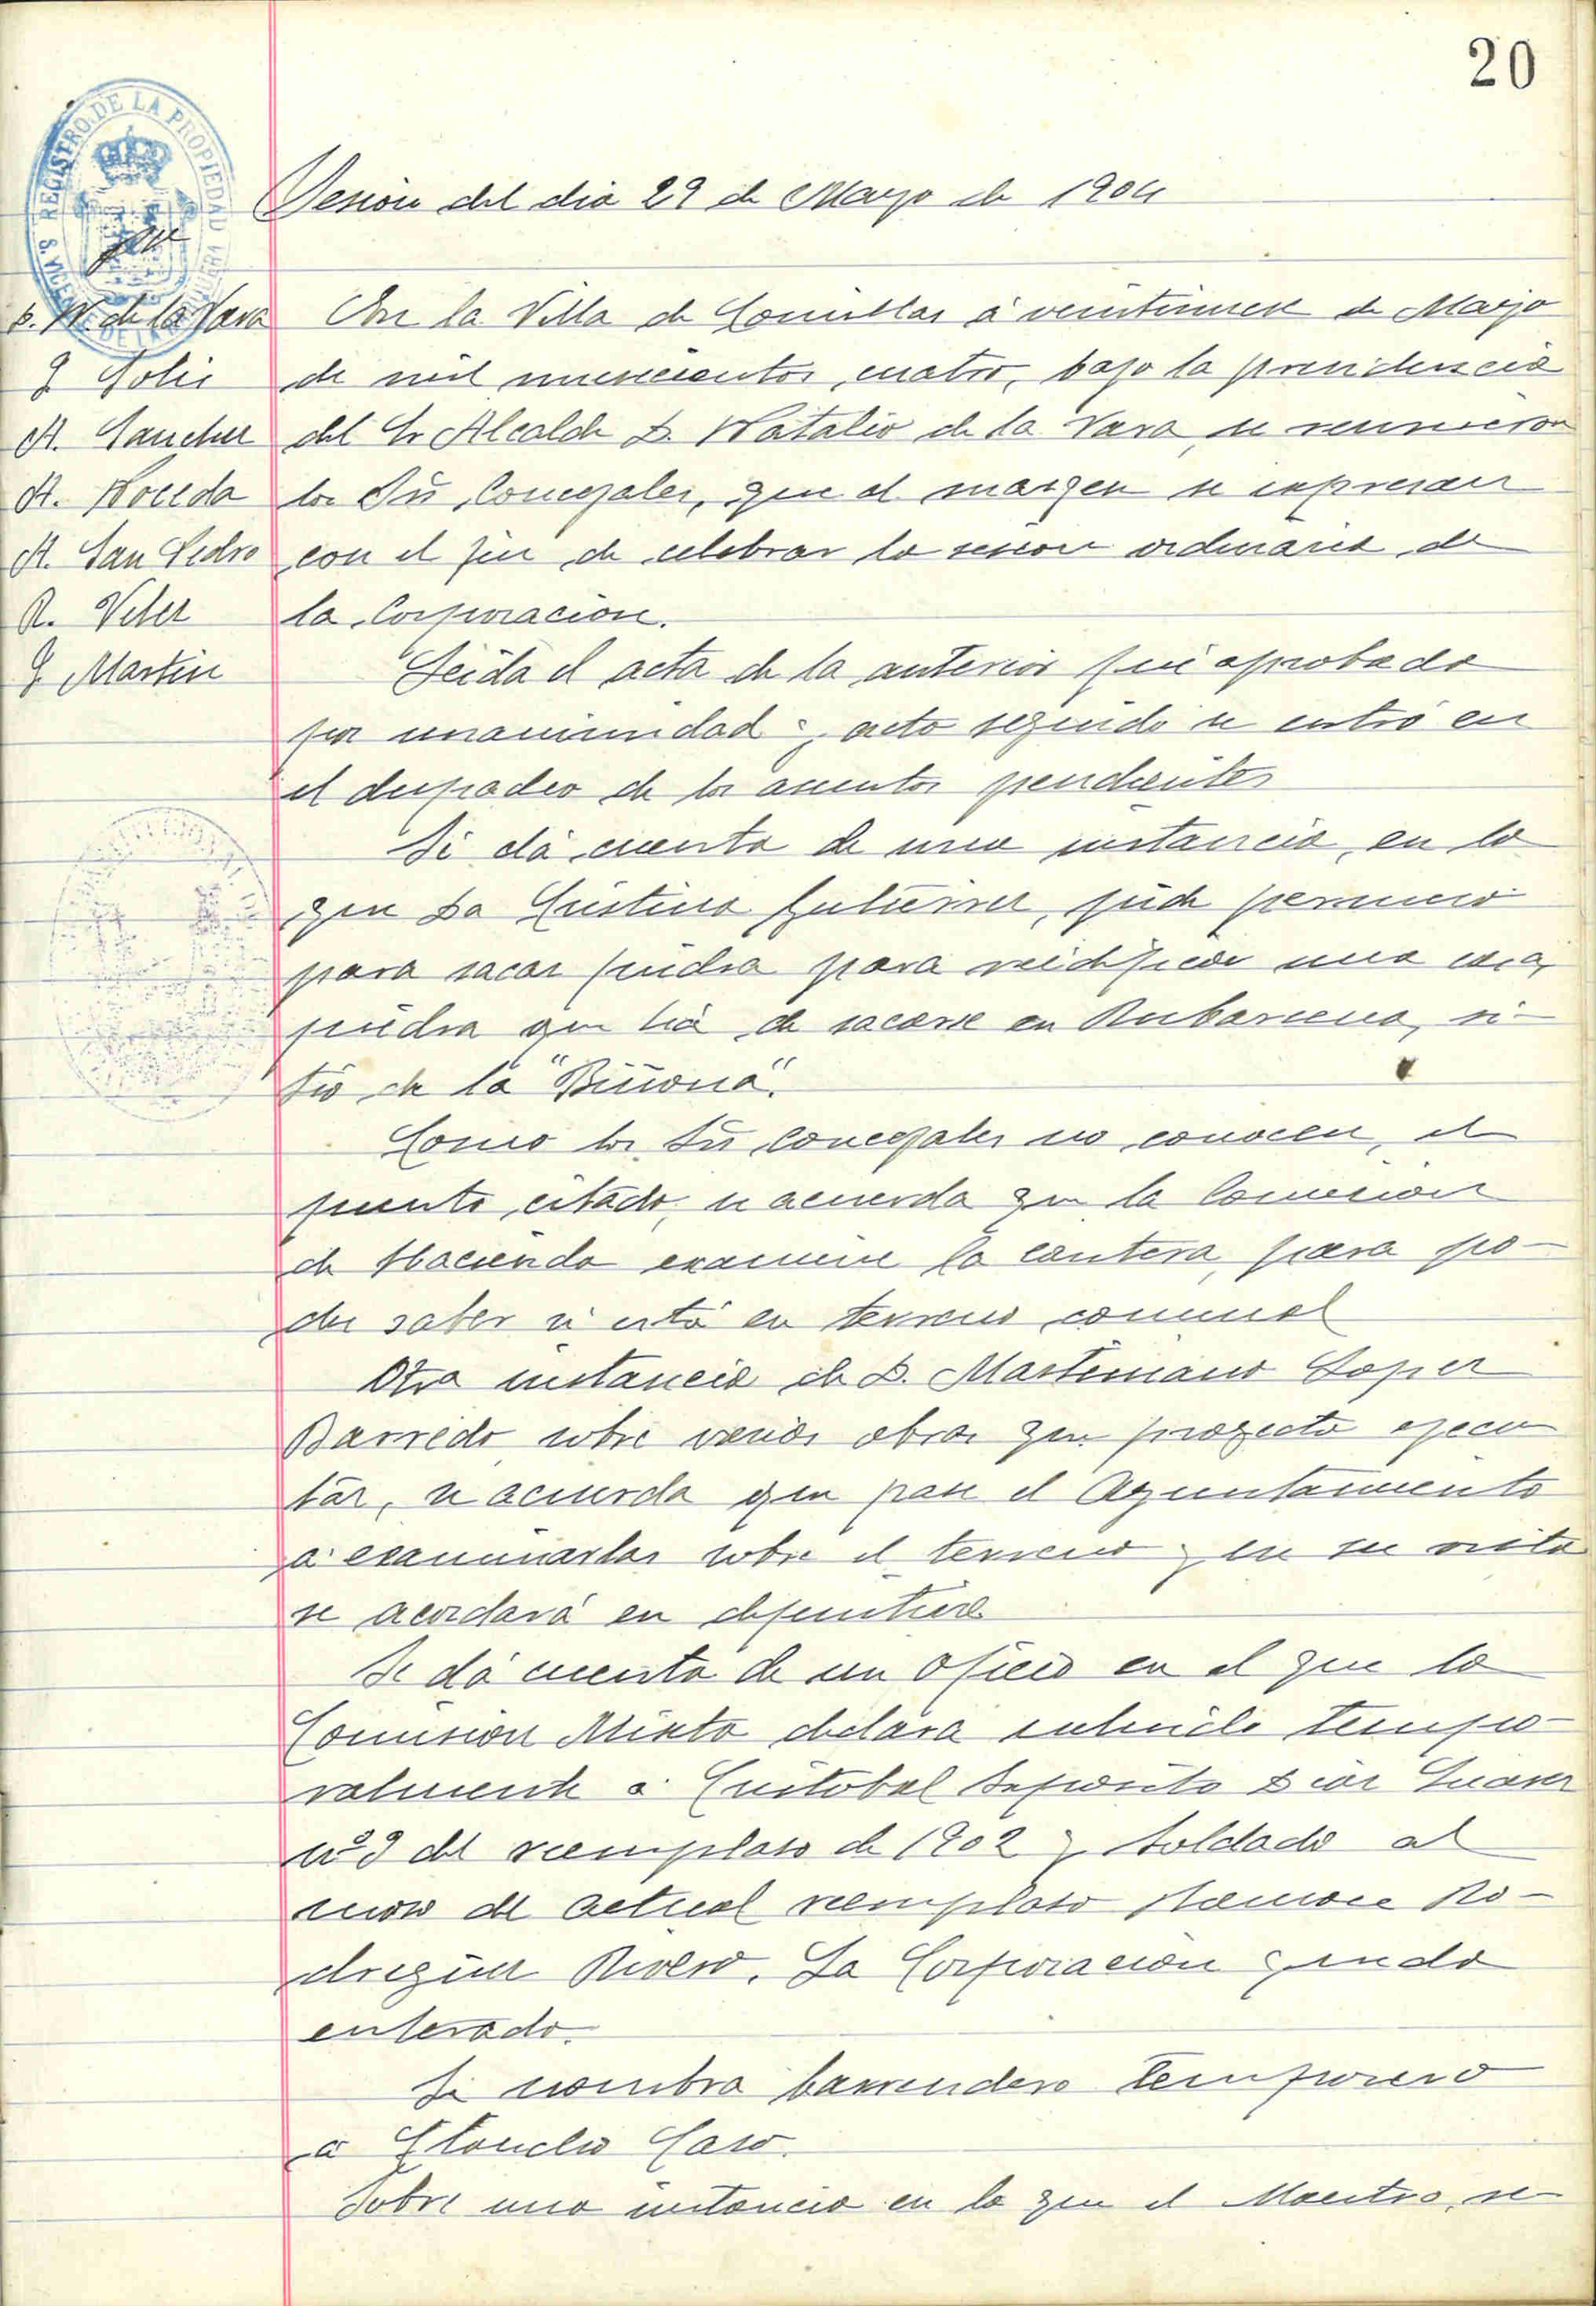 20
REGISTRO DE LA PROPIEDAD
Sesion del dia 29 de Mayo de 1904
D. N. de la Vara
J. Solis
A. Sanchez
A. Noceda
A. San Pedro
R. Velez
J. Martin
En la Villa de Comillas á veintinueve de Mayo
de mil novecientos cuatro, bajo la presidencia
del Sr Alcalde D. Natalio de la Vara, se reunieron
los Srs Concejales, que al margen se expresan
con el fin de celebrar la sesion ordinaria de
la Corporacion.
Leida el acta de la anterior fué aprobada
por unanimidad y acto seguido se entró en
el despacho de los asuntos pendientes
Se dá cuenta de una instancia, en la
que Da Cristina Gutierrez, pide permiso
para sacar piedra para reedificar una casa,
piedra que há de sacarse en Rubarcena, si-
tio de la "Binona".
Como los Srs Concejales no conocen, el
punto citado, se acuerda que la Comision
de Hacienda examine la cantera, para po-
der saber si está en terreno comunal
Otra instancia de D. Martiniano Lopez
Barredo sobre varias obras que proyecta ejecu
tar, se acuerda que pase el Ayuntamiento
a examinarlas sobre el terreno y en su vista
se acordará en definitiva
Se dá cuenta de un oficio en el que la
Comision Mixta declara exclu­ido tempo-
ralmente a Cristobal Diaz
nº 3 del reemplazo de 1902 y soldado al
mozo del actual reemplazo Ramon Ro-
driguez Rivero. La Corporacion queda
enterada.
Se nombra barrendero temporero
a Caso.
Sobre una instancia en la que el Maestro, se